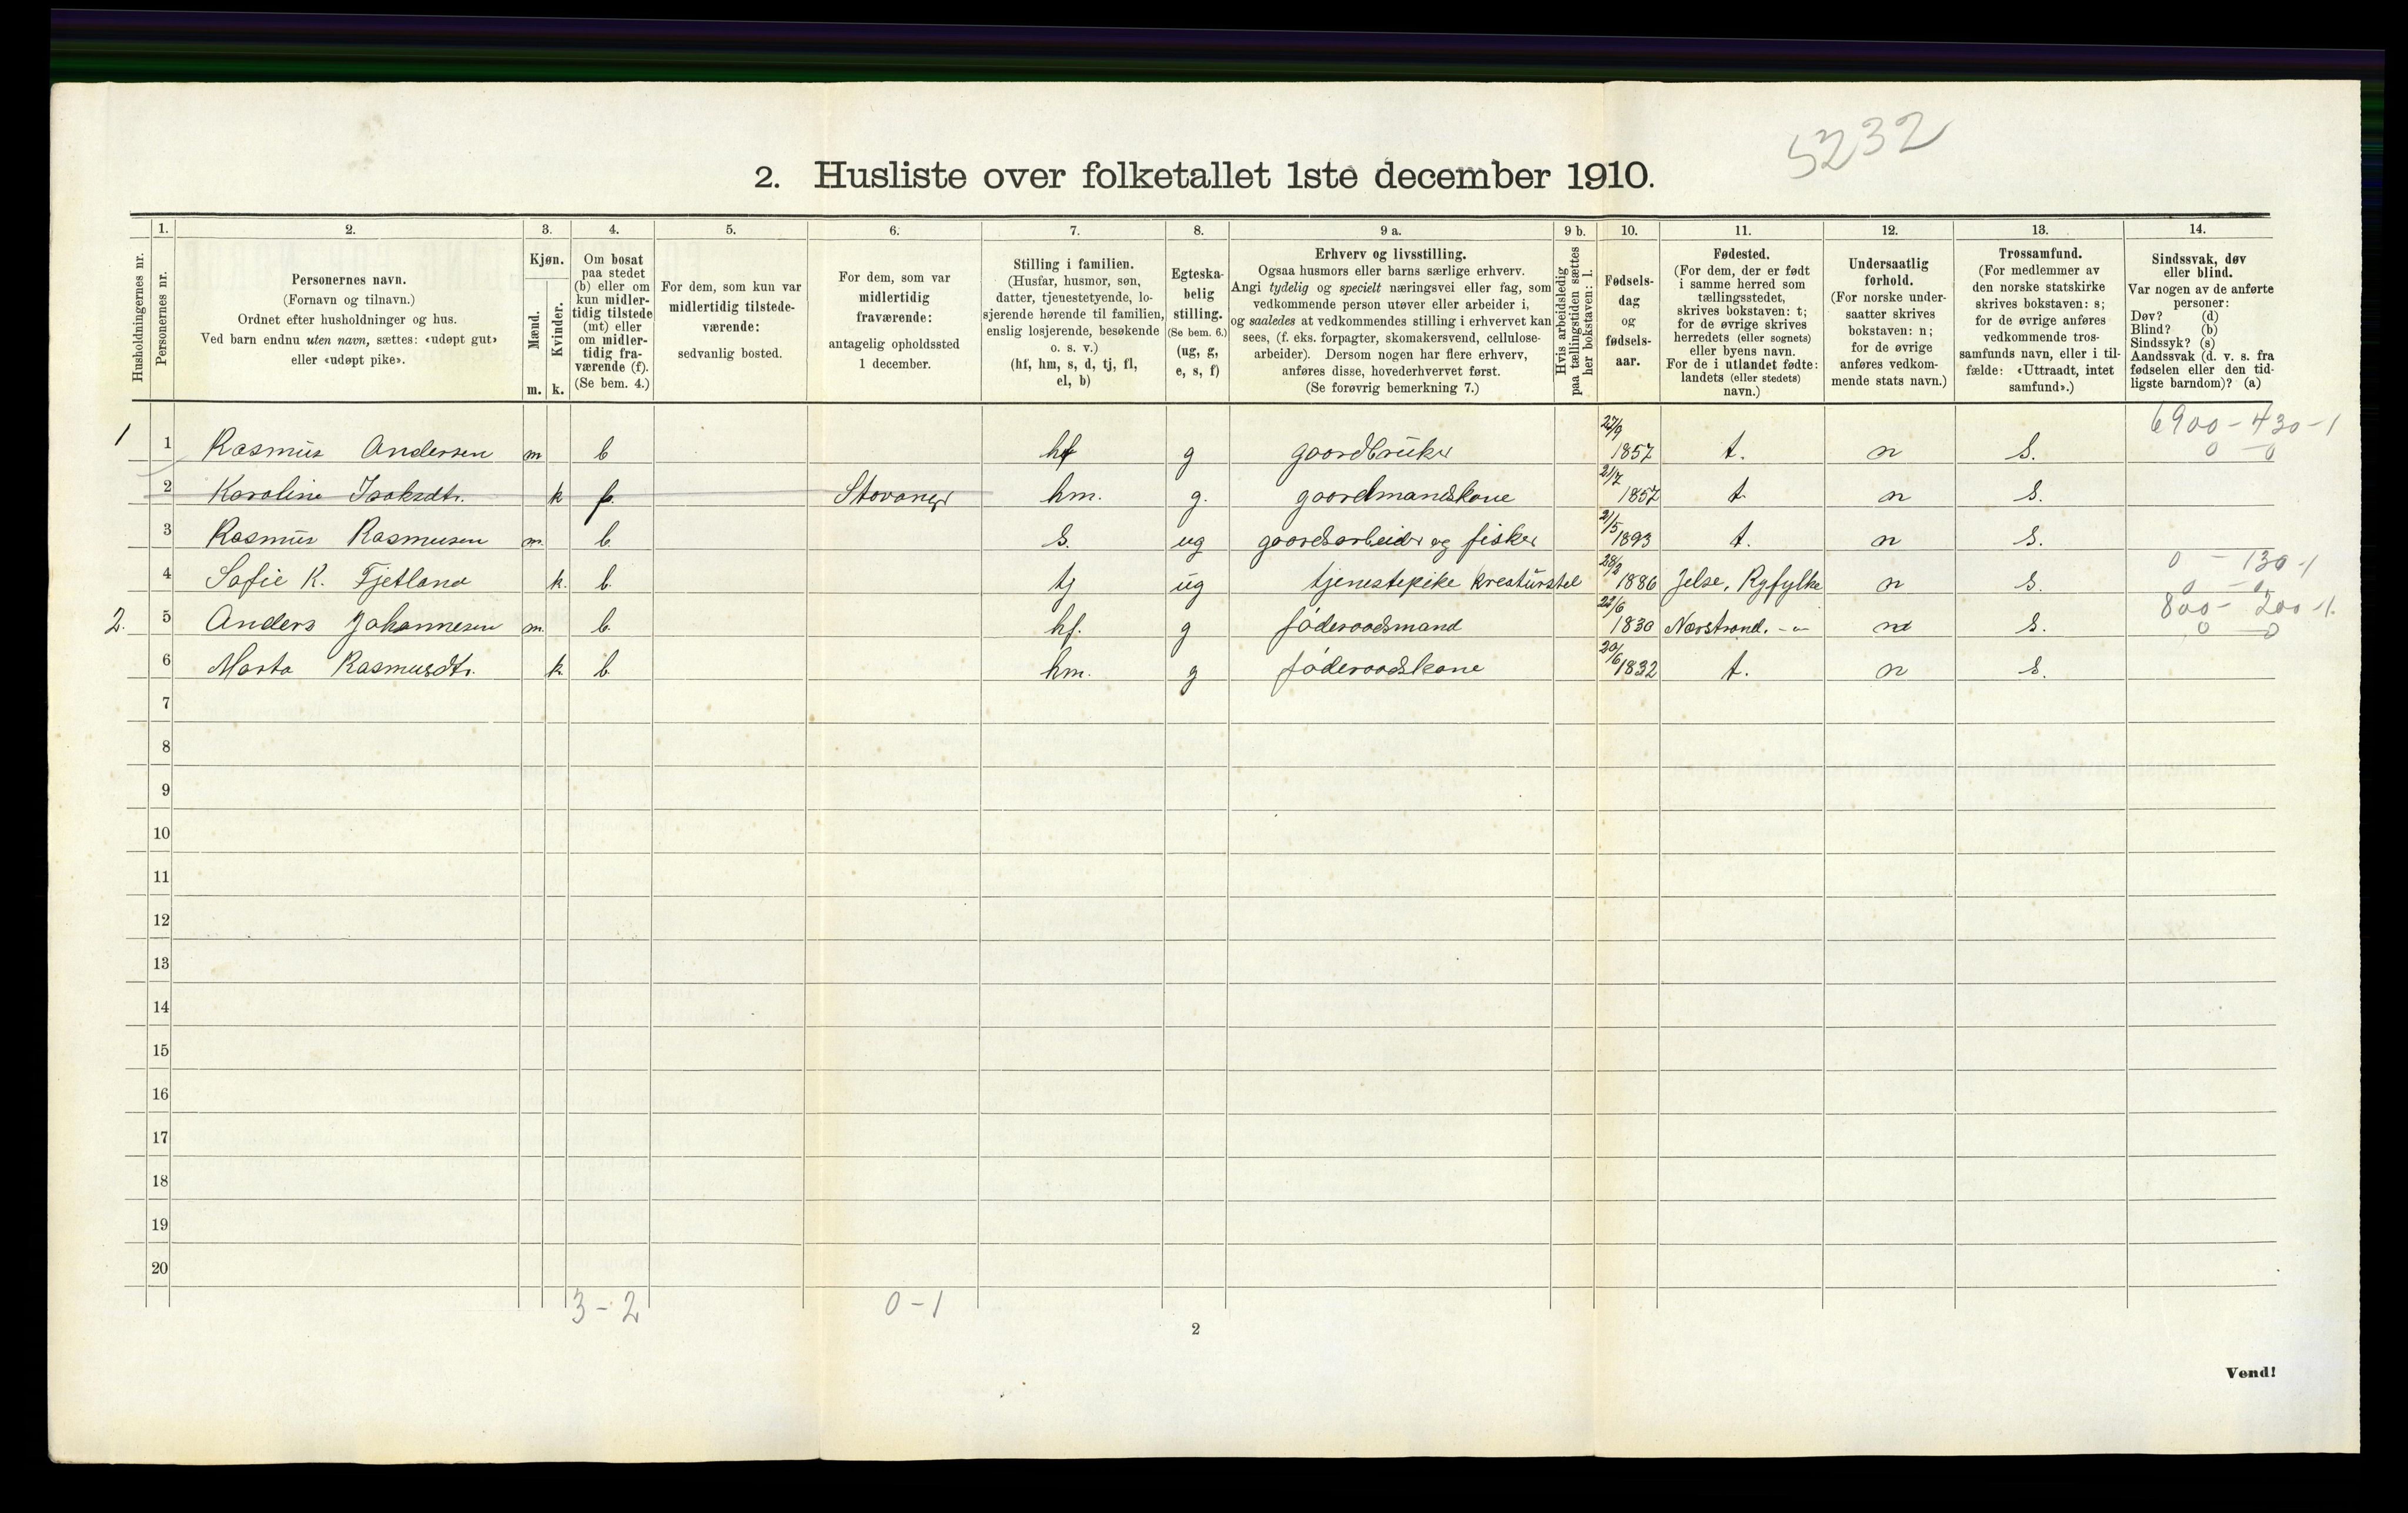 5232
2. Husliste over folketallet 1ste december 1910.
Husholdningernes nr.
1. Personernes nr.
2. Personernes navn.
(Fornavn og tilnavn.)
Ordnet efter husholdninger og hus.
Ved barn endnu uten navn, sættes: «udøpt gut»
eller «udøpt pike».
3. Kjøn.
Mænd. m.
Kvinder. k.
4. Om bosat
paa stedet
(b) eller om
kun midler-
tidig tilstede
(mt) eller
om midler-
tidig fra-
værende (f).
(Se bem. 4.)
5. For dem, som kun var
midlertidig tilstede-
værende:
sedvanlig bosted.
6. For dem, som var
midlertidig
fraværende:
antagelig opholdssted
1 december.
7. Stilling i familien.
(Husfar, husmor, søn,
datter, tjenestetyende, lo-
sjerende hørende til familien,
enslig losjerende, besøkende
o. s. v.)
(hf, hm, s, d, tj, fl,
el, b)
8. Egteska-
belig
stilling.
(Se bem. 6.)
(ug, g,
e, s, f)
9 a. Erhverv og livsstilling.
Ogsaa husmors eller barns særlige erhverv.
Angi tydelig og specielt næringsvei eller fag, som
vedkommende person utøver eller arbeider i,
og saaledes at vedkommendes stilling i erhvervet kan
sees, (f. eks. forpagter, skomakersvend, cellulose-
arbeider). Dersom nogen har flere erhverv,
anføres disse, hovederhvervet først.
(Se forøvrig bemerkning 7.)
9 b. Hvis arbeidsledig
paa tællingstiden sættes
her bokstaven: l.
10. Fødsels-
dag
og
fødsels-
aar.
11. Fødested.
(For dem, der er født
i samme herred som
tællingsstedet,
skrives bokstaven: t;
for de øvrige skrives
herredets (eller sognets)
eller byens navn.
For de i utlandet fødte:
landets (eller stedets)
navn.)
12. Undersaatlig
forhold.
(For norske under-
saatter skrives
bokstaven: n;
for de øvrige
anføres vedkom-
mende stats navn.)
13. Trossamfund.
(For medlemmer av
den norske statskirke
skrives bokstaven: s;
for de øvrige anføres
vedkommende tros-
samfunds navn, eller i til-
fælde: «Uttraadt, intet
samfund».)
14. Sindssvak, døv
eller blind.
Var nogen av de anførte
personer:
Døv? (d)
Blind? (b)
Sindssyk? (s)
Aandssvak (d. v. s. fra
fødselen eller den tid-
ligste barndom)? (a)
6900 - 430 - 1
1 1 Rasmus Andersen m b hf g gaardbruker 27/9 1857 t. n s. 0 - 0
2 Karoline Isaksdtr. k f. Stavanger hm. g. gaardmandskone 21/7 1857 t. n s.
3 Rasmus Rasmusen m. b. s. ug gaardsarbeider og fisker 21/5 1893 t. n s.
0 - 130 - 1
4 Sofie K. Fjetland k. b. tj ug tjenestepike kreaturstel 28/2 1886 Jelse, Ryfylke n s. 0 - 0
800 - 200 - 1.
2. 5 Anders Johannesen m. b. hf. g føderaadsmand 22/6 1830 Nærstrand. - „ - n s. 0 - 0
6 Marta Rasmusdtr. k b. hm. g føderaadskone 20/6 1832 t. n s.
7
8
9
10
11
12
13
14
15
16
17
18
19
20
3 - 2 0 - 1
2
Vend!